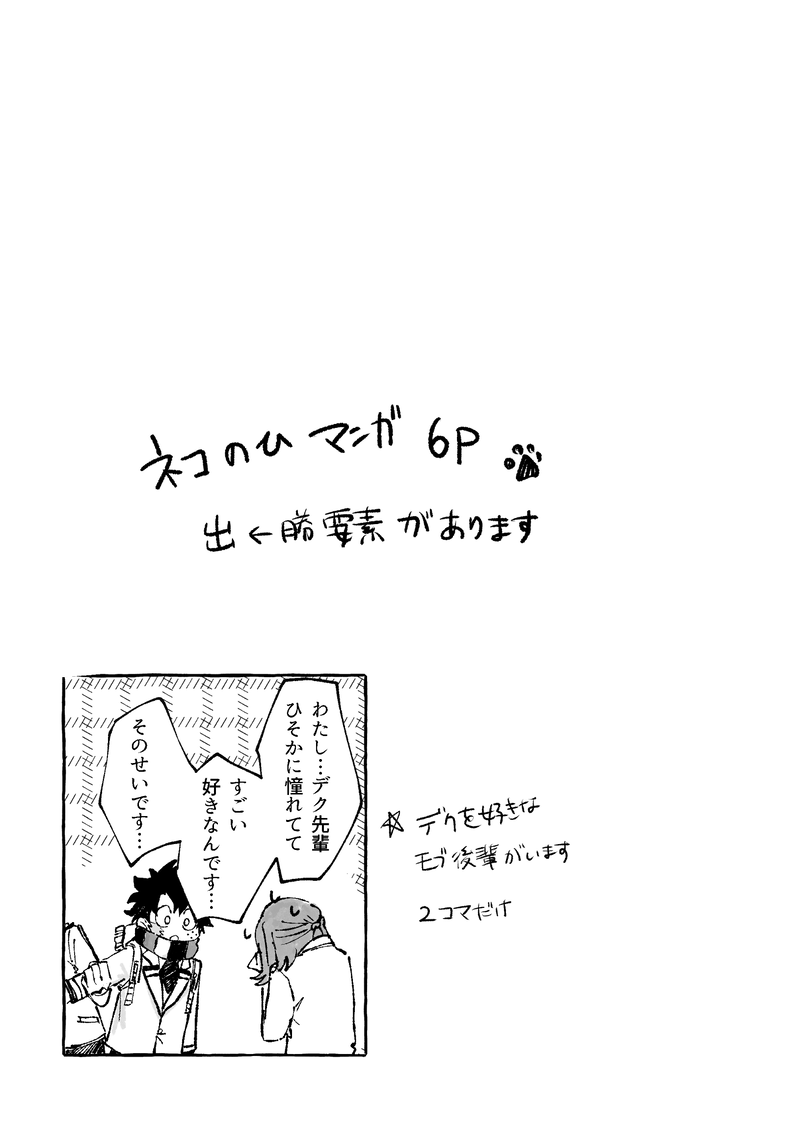 ネコのひ マンガ 6P
出←勝要素があります
わたし…デク先輩
ひそかに憧れてて
すごい
好きなんです…
そのせいです…
☆ デクを好きな
モブ後輩がいます
2コマだけ